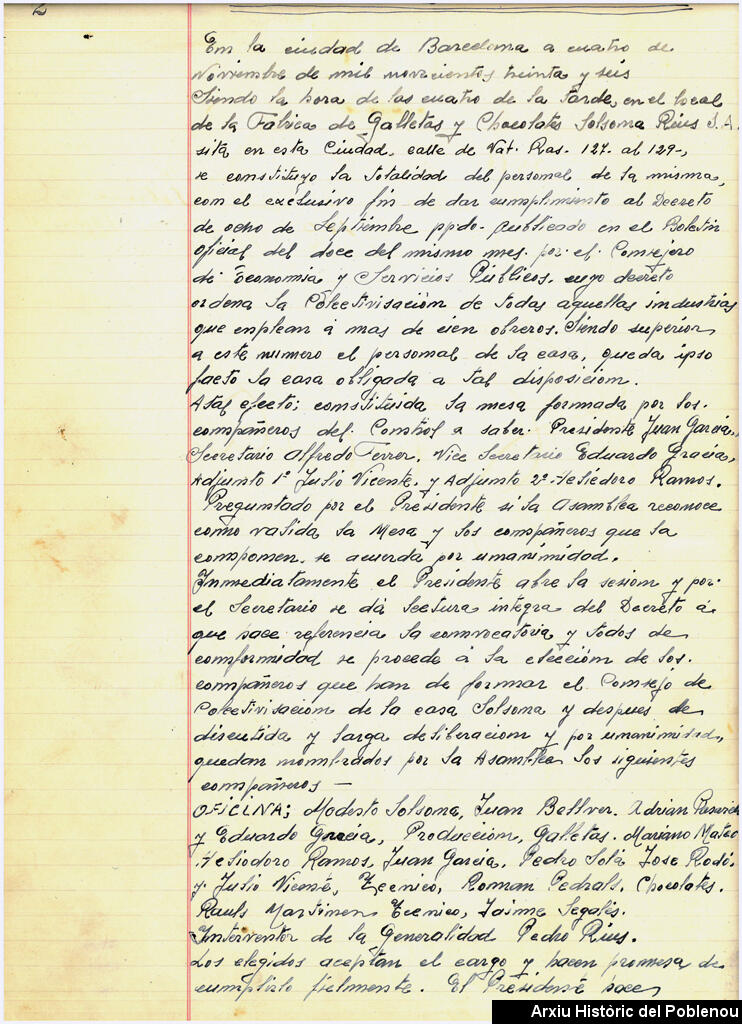 2
En la ciudad de Barcelona a cuatro de
Noviembre de mil novecientos treinta y seis
Siendo la hora de las cuatro de la tarde, en el local
de la Fabrica de Galletas y Chocolates Solsona Rius S.A.
sita en esta Ciudad, calle de Wat. Ras. 127. al 129-,
se constituyo la totalidad del personal de la misma,
con el exclusivo fin de dar cumplimiento al Decreto
de ocho de Septiembre ppdo. publicado en el Boletin
oficial del doce del mismo mes. por el Consejero
de Economia y Servicios Públicos. cuyo decreto
ordena la Colectivisación de todas aquellas industrias
que enplean á mas de cien obreros. Siendo superior
a este numero el personal de la casa, queda ipso
facto la casa obligada a tal disposicion.
A tal efecto; constituida la mesa formada por los
compañeros del Control a saber. Presidente Juan Garcia,
Secretario Alfredo Ferrer, Vice Secretario Eduardo Gracia,
Adjunto 1º Julio Vicente, y Adjunto 2º Heliodoro Ramos.
Preguntado por el Presidente si la Asamblea reconoce
como valida la Mesa y los compañeros que la
componen. se acuerda por unanimidad.
Inmediatamente el Presidente abre la sesion y por
el Secretario se dá lectura integra del Decreto á
que hace referencia la convocatoria y todos de
comformidad se procede á la elección de los
compañeros que han de formar el Consejo de
Colectivisación de la casa Solsona y despues de
discutida y larga deliberacion y por unanimidad,
quedan nombrados por la Asamblea los siguientes
compañeros —
OFICINA; Modesto Solsona, Juan Bellver. Adrian
y Eduardo Gracia, Producción, Galletas. Mariano Mateo
Heliodoro Ramos, Juan Garcia, Pedro Solá Jose Rodó.
y Julio Vicente, Tecnico, Roman Pedrals. Chocolates.
Rauls Martinen Tecnico, Jaime Segalés.
Interventor de la Generalidad Pedro Rius.
Los elegidos aceptan el cargo y hacen promesa de
cumplirlo fielmente. El Presidente hace
Arxiu Històric del Poblenou